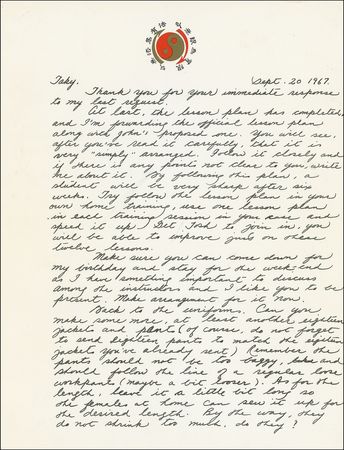 Taky. Sept. 20 1967.
Thank you for your immediate response
to my last request.
At last, the lesson plan has completed,
and I'm forwarding the official lesson plan
along with John's proposed one. You will see,
after you've read it carefully, that it is
very "simply" arranged. Follow it closely and
if there is any points not clear to you, write
me about it. By following this plan, a
student will be very sharp after six
weeks. Try follow the lesson plan in your
own home training, use one lesson plan
in each training session in your case and
speed it up. Get Tosh to join in, you
will be able to improve just on these
twelve lessons.
Make sure you can come down for
my birthday and stay for the week end
as I have something important to discuss
among the instructors and I like you to be
present. Make arrangment for it now.
Back to the uniforms. Can you
make some more, at least another eighteen
jackets and pants (of course, do not forget
to send eighteen pants to match the eighteen
jackets you've already sent). Remember the
pants should not be too baggy,
should follow the line of a regular loose
workpants (maybe a bit looser). As for the
length, leave it a little bit long so
the females at home can sew it up for
the desired length. By the way, they
do not shrink too much, do they?